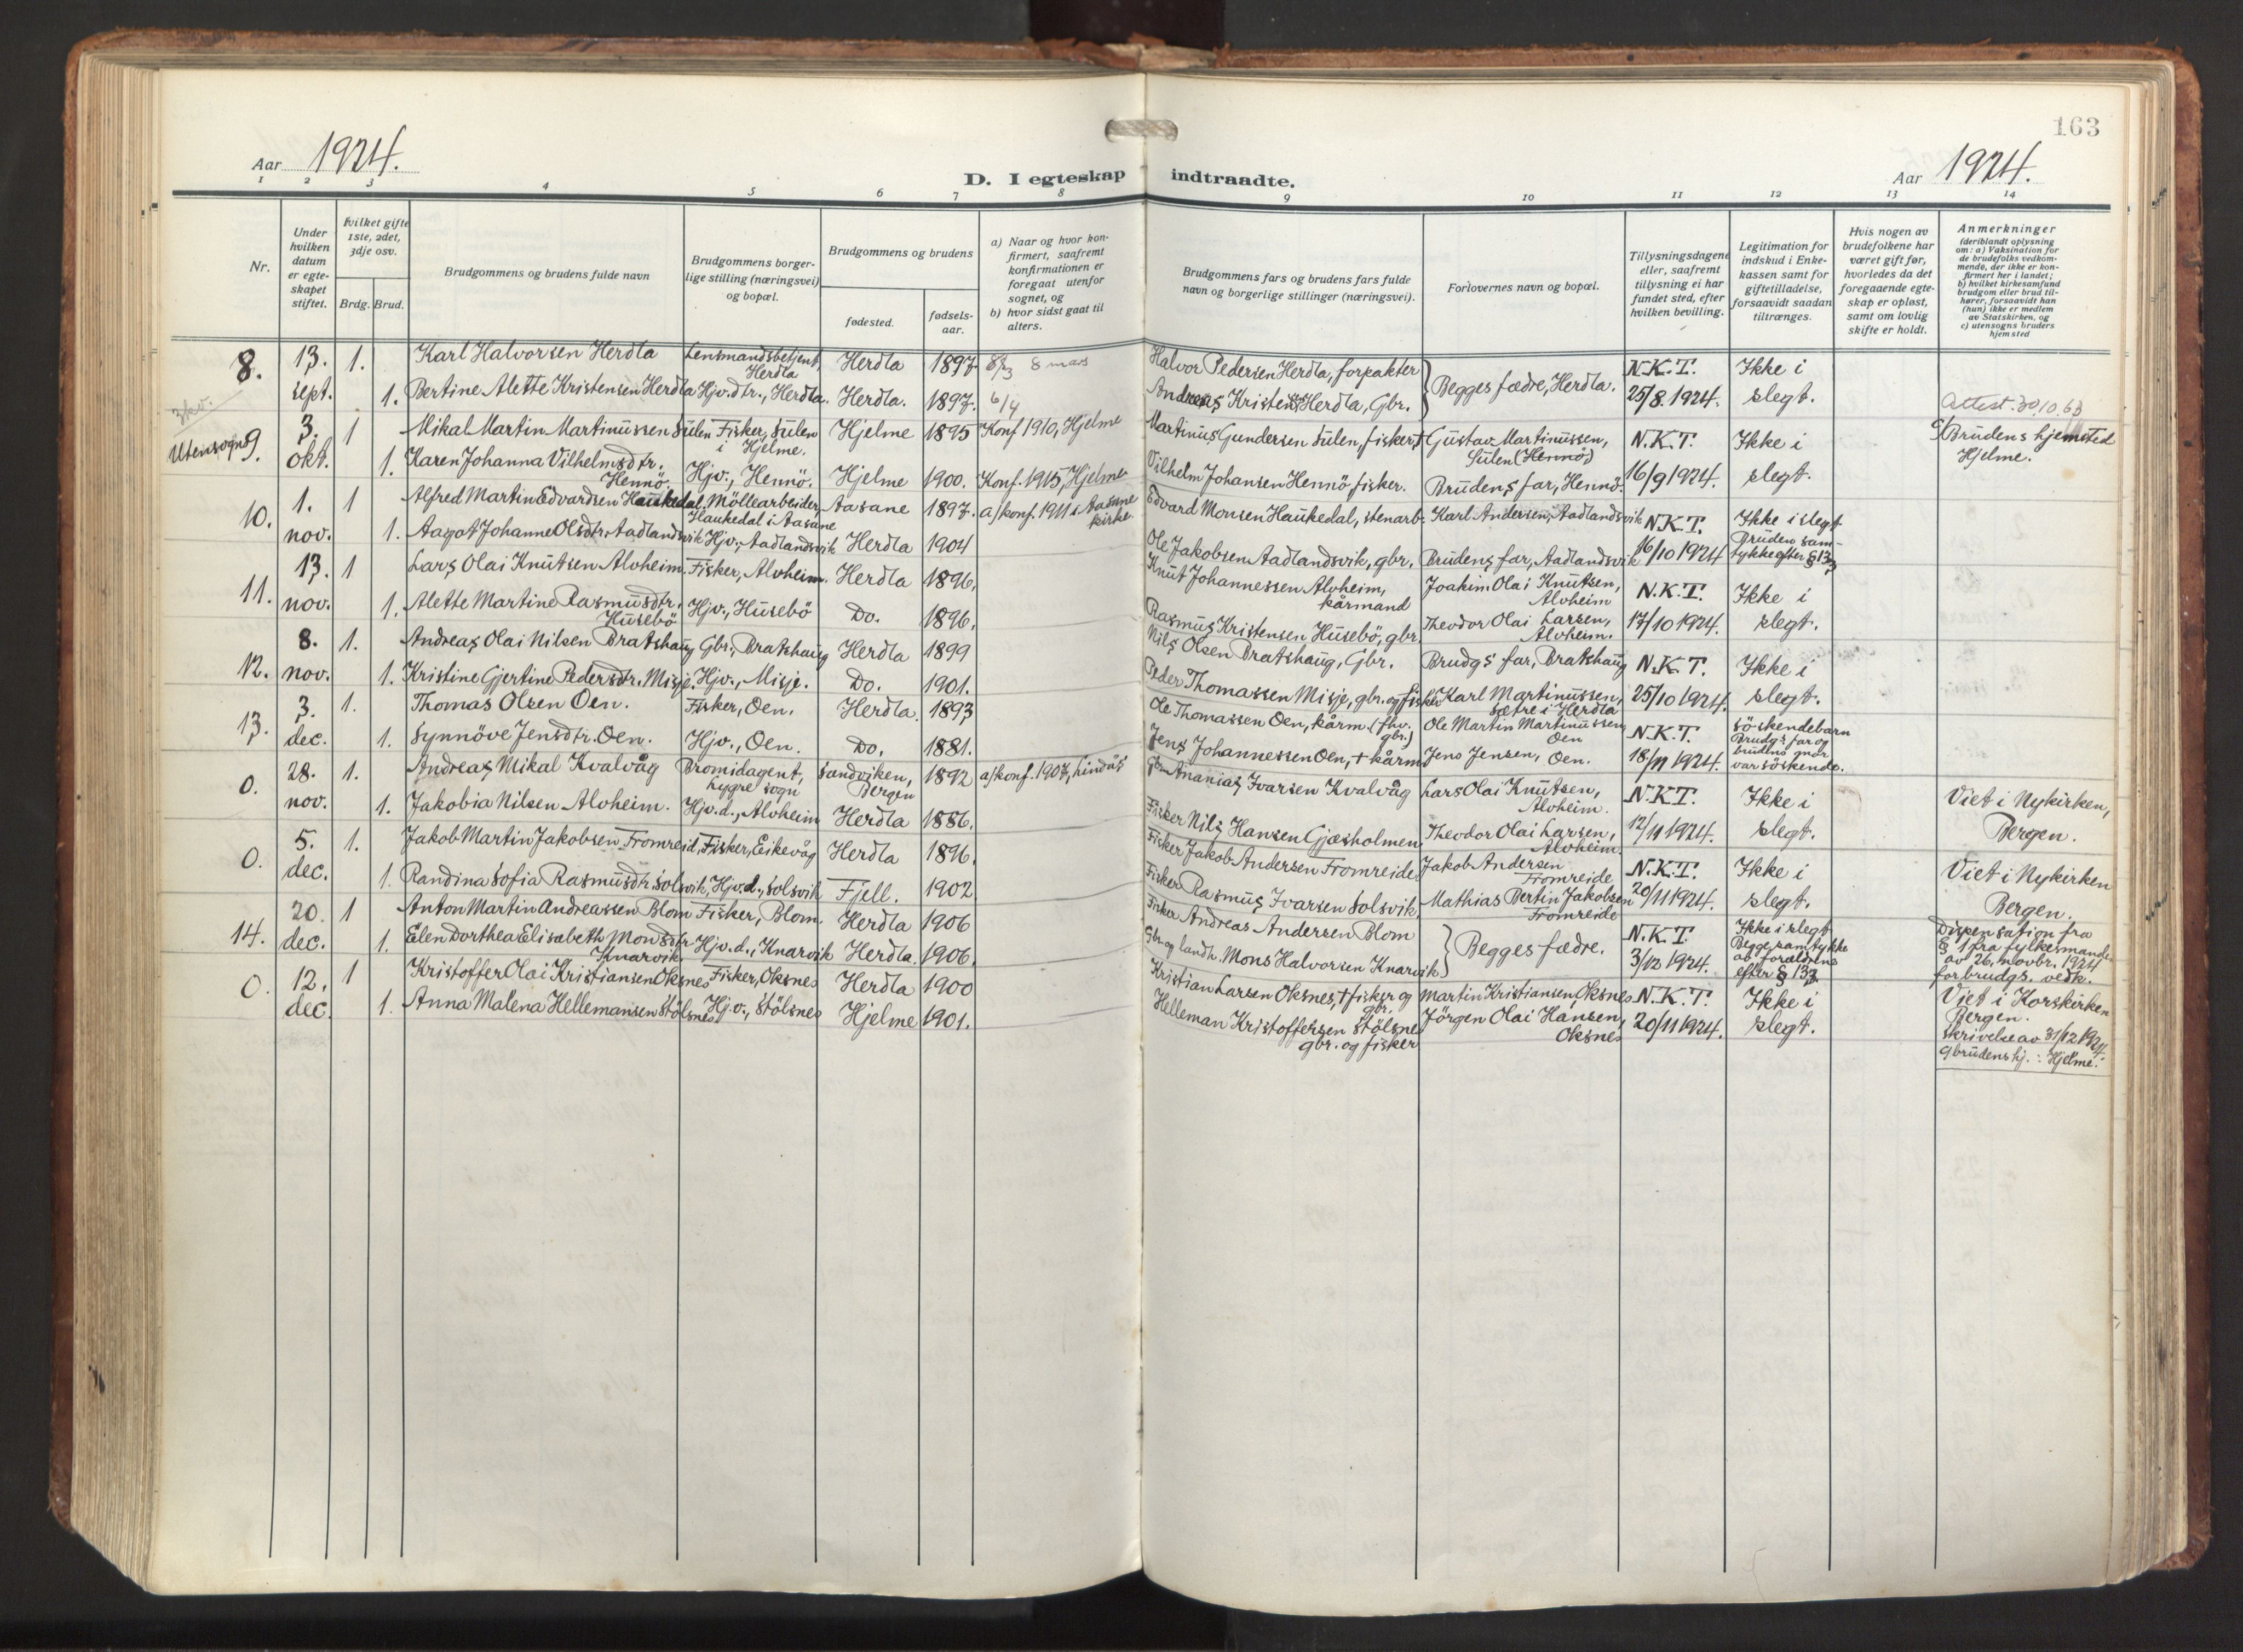 163
Aar 1924.
D. I egteskap indtraadte.
Aar 1924.
1 2 3 4 5 6 7 8 9 10 11 12 13 14
Nr.
Under hvilken datum er egteskapet stiftet.
Hvilket gifte 1ste, 2det, 3dje osv.
Brdg. Brud.
Brudgommens og brudens fulde navn
Brudgommens borgerlige stilling (næringsvei) og bopæl.
Brudgommens og brudens
fødested.
fødselsaar.
a) Naar og hvor konfirmert, saafremt konfirmationen er foregaat utenfor sognet, og
b) hvor sidst gaat til alters.
Brudgommens fars og brudens fars fulde navn og borgerlige stillinger (næringsvei).
Forlovernes navn og bopæl.
Tillysningsdagene eller, saafremt tillysning ei har fundet sted, efter hvilken bevilling.
Legitimation for indskud i Enkekassen samt for giftetilladelse, forsaavidt saadan tiltrænges.
Hvis nogen av brudefolkene har været gift før, hvorledes da det foregaaende egteskap er opløst, samt om lovlig skifte er holdt.
Anmerkninger (deriblandt oplysning om: a) Vaksination for de brudefolks vedkommende, der ikke er konfirmert her i landet; b) hvilket kirkesamfund brudgom eller brud tilhører, forsaavidt han (hun) ikke er medlem av Statskirken, og c) utensogns bruders hjemsted
8. 13. sept. 1. Karl Halvorsen Herdla Lensmandsbetjent, Herdla Herdla 1897 8/23 8 mars Halvor Pedersen Herdla, forpakter Begges fædre, Herdla. N.K.T. 25/8. 1924. Ikke i slegt.
1. Bertine Alette Kristensen Herdla Hjv. dtr., Herdla. Herdla. 1897. 6/4 Andreas Kristensen Herdla, Gbr.
Attest. 30/10.63
Utensogns 9. 3. okt. 1 Mikal Martin Martinussen Sulen Fisker, Sulen i Hjelme. Hjelme 1895 Konf 1910, Hjelme Martinus Gundersen Sulen, fisker, † Gustav Martinussen, Sulen (Hennö) N.K.T. 16/9 1924. Ikke i slegt. c) Brudens hjemsted Hjelme.
1. Karen Johanna Vilhelmsdtr. Hennö. Hjv., Hennö. Hjelme 1900. Konf. 1915, Hjelme Vilhelm Johansen Hennö, fisker. Brudens far, Hennö.
10. 1. nov. 1 Alfred Martin Edvardsen Haukedal. Möllearbeider, Haukedal i Aasane Aasane 1897. a) konf. 1911 i Aasane kirke Edvard Monsen Haukedal, stenarb. Karl Andersen, Aadlandsvik N.K.T. 16/10 1924 Ikke i slegt Bruden samtykke efter § 13,3
1. Aagot Johanne Olsdtr. Aadlandsvik Hjv., Aadlandsvik Herdla 1904 Ole Jakobsen Aadlandsvik, gbr. Brudens far, Aadlandsvik
11. 13. nov. 1 Lars Olai Knutsen Alvheim. Fisker, Alvheim. Herdla 1896. Knut Johannessen Alvheim, kårmand Joakim Olai Knutsen, Alvheim N.K.T. 17/10 1924. Ikke i slegt.
1. Alette Martine Rasmusdtr. Husebö Hjv., Husebö Do. 1896. Rasmus Kristensen Husebö, gbr Theodor Olai Larsen, Alvheim.
12. 8. nov. 1. Andreas Olai Nilsen Bratshaug Gbr., Bratshaug Herdla 1899 Nils Olsen Bratshaug, Gbr. Brudgs far, Bratshaug N.K.T. 25/10 1924. Ikke i slegt.
1. Kristine Gjertine Pedersdtr. Misje. Hjv., Misje. Do. 1901. Peder Thomassen Misje, gbr. og fisker Karl Martinussen, Sætre i Herdla
13. 3. dec. 1. Thomas Olsen Oen. Fisker, Oen. Herdla. 1893 Ole Thomassen Oen, kårm. (fhv. gbr.) Ole Martin Martinussen Oen N.K.T. 18/11 1924. Söskendebarn Brudgs far og brudens mor var söskende.
1. Synnöve Jensdtr. Oen. Hjv., Oen. Do. 1881. Jens Johannessen Oen, † kårm Jens Jensen, Oen.
0. 28. nov. 1. Andreas Mikal Kvalvåg Bromidagent, Lygre sogn Sandviken, Bergen 1892 a) konf. 1907, Lindås Ananias Ivarsen Kvalvåg Lars Olai Knutsen, Alvheim. N.K.T. 12/11 1924. Ikke i slegt. Viet i Nykirken, Bergen.
1. Jakobia Nilsen Alvheim. Hjv. d., Alvheim Herdla 1886. Fisker Nils Hansen Gjæsholmen Theodor Olai Larsen, Alvheim
0. 5. dec. 1. Jakob Martin Jakobsen Fromreid, Fisker, Eikevåg Herdla 1896. Fisker Jakob Andersen Fromreide Jakob Andersen Fromreide N.K.T. 20/11 1924. Ikke i slegt. Viet i Nykirken Bergen.
1. Randina Sofia Rasmusdtr. Solsvik, Hjv. d., Solsvik Fjell. 1902 Fisker Rasmus Ivarsen Solsvik, Mathias Bertin Jakobsen Fromreide
14. 20. dec. 1 Anton Martin Andreassen Blom Fisker, Blom Herdla 1906 Fisker Andreas Andersen Blom Begges fædre. N.K.T. 3/12 1924. Ikke i slegt Begge samtykke av forældrene efter § 13,3 Dispensation fra § 1 fra fylkesmanden av 26. novbr. 1924 for brudgs. vedk.
1. Elen Dorthea Elisabeth Monsdtr Knarvik Hjv. d., Knarvik Herdla. 1906. Gbr. og landh. Mons Halvorsen Knarvik
0. 12. dec. 1 Kristoffer Olai Kristiansen Oksnes Fisker, Oksnes Herdla 1900 Kristian Larsen Oksnes, † fisker og gbr. Martin Kristiansen, Oksnes N.K.T. 20/11 1924. Ikke i slegt. Viet i Korskirken Bergen. Skrivelse av 31/12 1924. c) brudens hj.: Hjelme.
1. Anna Malena Hellemansen Stölsnes Hjv., Stölsnes Hjelme 1901. Helleman Kristoffersen Stölsnes gbr. og fisker Jörgen Olai Hansen, Oksnes